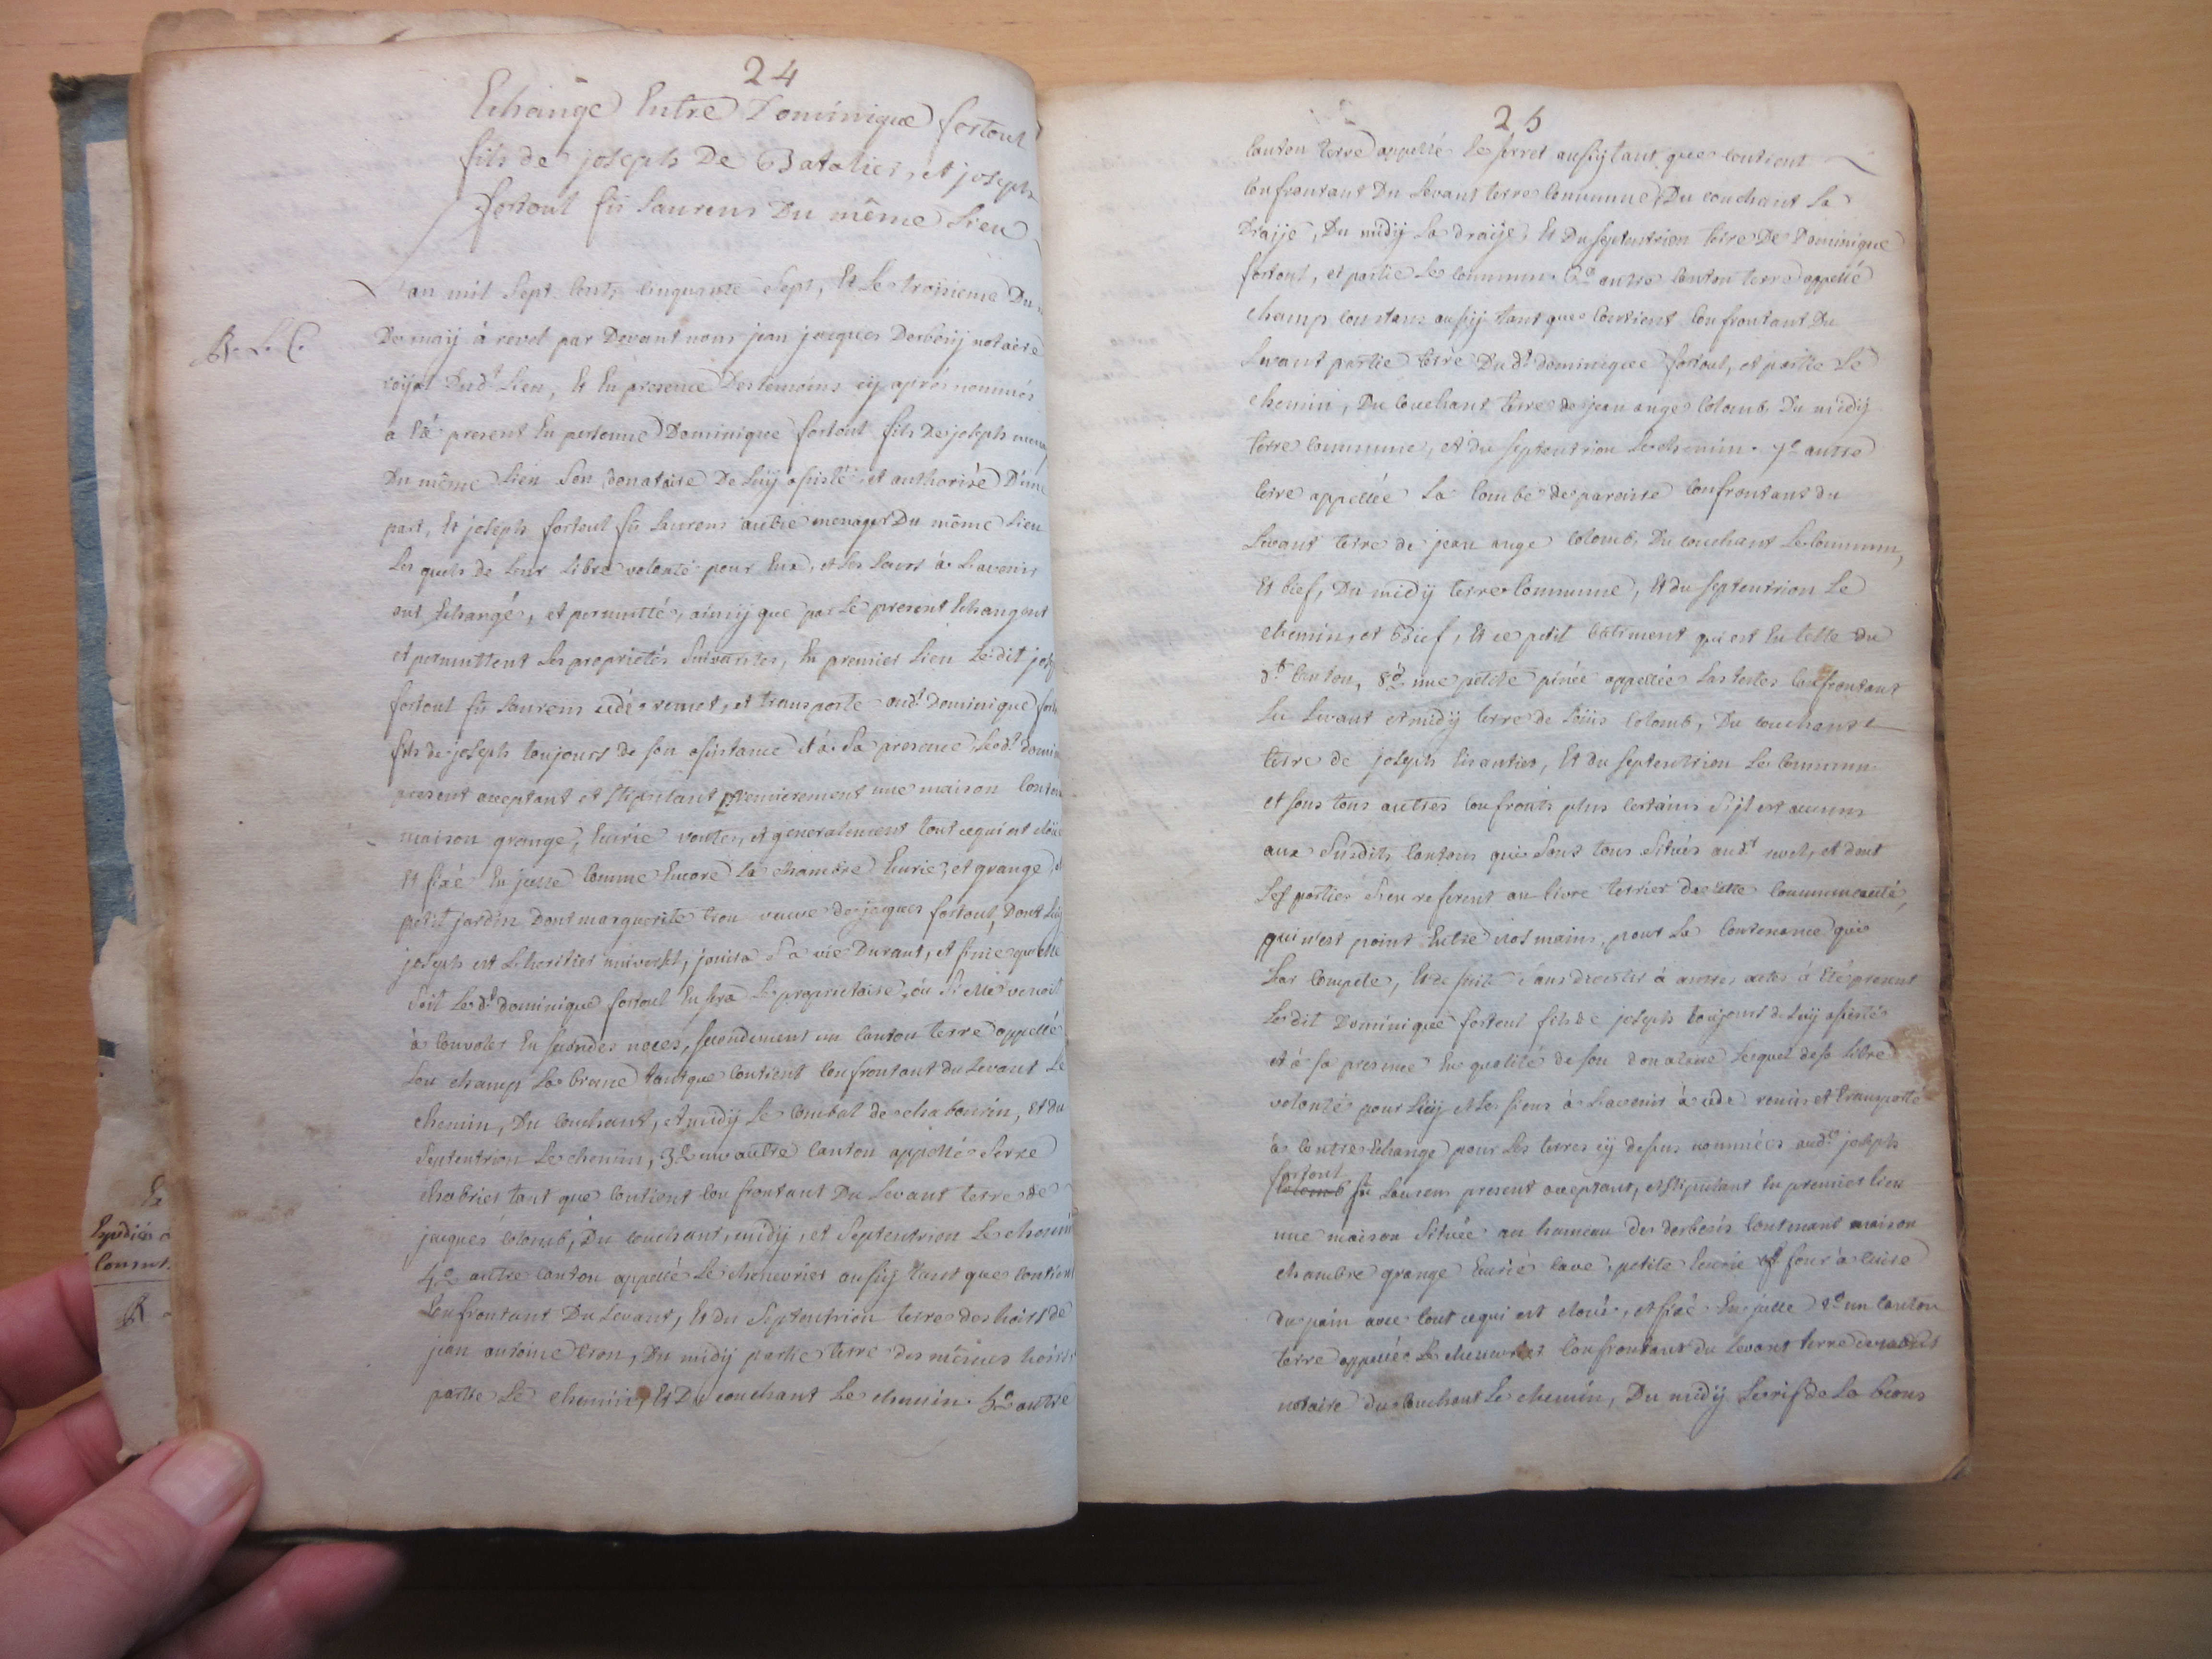 24
Echange Entre Dominique fortoul
fils de joseph De Batalier, et joseph
fortoul fû Laurens Du même Lieu
L'an mil Sept Cents Cinquante Sept, Et Le troisieme Du
De maÿ à revel par Devant nous jean jacques Derbesÿ notaire
R. L. C.
roÿal Dud.t Lieu, Et En presence Des temoins cÿ aprés nommés
a Eté present En personne Dominique fortoul fils De joseph
Du même Lieu Son donataire De Luÿ assisté et authorisé D'une
part, Et joseph fortoul fû Laurens autre menager Du même Lieu
Les quels de Leur Libre volonté pour Eux, et Les Leurs à L'avenir
ont Echangé, et permutté, ainsÿ que par Le present Echangent
et permuttent Les proprietés Suivantes, En premier Lieu Le dit
fortoul fû Laurens cédé remet, et transporte aud.t Dominique
fils de joseph toujours de son assistance et à Sa presence, Led.t
present acceptant et stipulant premierement une maison
maison grange, Ecurie voutes, et generalement tout ce qui est cloüé
Et fixé En jcelle Comme Encore La chambre Ecurie, et grange
petit jardin Dont marguerite tron veuve de jacques fortoul, Dont Luÿ
joseph est L'heritier universel, jouira Sa vie Durant, et finie qu'elle
Soit Led.t dominique fortoul En Sera Le proprietaire, ou Si elle venoit
à Convoler En Secondes noces, Secondement un Canton terre appellé
Lou champ La brune tant que Contient Confrontant du Levant Le
chemin, Du Couchant, et midÿ Le Combal de chabourin, Et du
Septentrion Le chemin, 3.e un autre Canton appellé Serre
chabrier tant que Contient Confrontant Du Levant terre de
jacques Colomb, Du Couchant, midÿ, et Septentrion Le chemin
4.e autre Canton appellé Le chenevrier aussÿ tant que Contient
Confrontant Du Levant, Et du Septentrion terre des hoirs de
jean antoine tron, Du midÿ partie terre des mêmes hoirs
partie Le chemin, Et Du couchant Le chemin. 5.e autre
25
Canton terre appellé Le serret aussÿ tant que Contient
Confrontant Du Levant terre Commune, Du couchant La
Draÿe, Du midÿ La draÿe, Et Du Septentrion terre De Dominique
fortoul, et partie Le Commun. 6.e autre Canton terre appellé
champ Constans aussÿ tant que Contient Confrontant Du
Levant partie terre Dud.t dominique fortoul, et partie Le
chemin, Du Couchant terre de jean ange Colomb, Du midÿ
terre Commune, et du Septentrion Le chemin. 7.e autre
terre appellée La Combe de paroire Confrontant du
Levant terre de jean ange Colomb, Du couchant Le Commun,
Et bief, Du midÿ terre Commune, Et du Septentrion Le
chemin, et bief, Et ce petit bâtiment qui est En tette du
d.t Canton, 8.e une petite piéce appellée Confrontant
Du Levant et midÿ terre de Loüis Colomb, Du couchant
terre de joseph, Et du Septentrion Le Commun
et sous tous autres Confronts plus Certains S'jl est aucuns
aux Susdits Cantons qui Sont tous Situés aud.t revel, et dont
Les parties S'en referent au livre terrier de cette Communeauté,
qui n'est point Entre nos mains, pour La Contenance qui
Leur Compete, Et de suite Sans divertir à autres actes à Eté present
Le dit Dominique fortoul fils de joseph toujours de Luÿ assisté
et à sa presence En qualité de Son donataire Lequel de sa Libre
volonté pour Luÿ et Les siens à L'avenir à cédé remis et transporté
à Contre Echange pour Les terres cÿ dessus nommées aud.t joseph
fortoul
Colomb fû Laurens present acceptant, et stipulant En premier lieu
une maison Située au hameau des derbesis Contenant maison
chambre grange Ecurie Cave, petite Ecurie et four à Cuire
du pain avec tout ce qui est cloué, et fixé En jcelle 2.e un Canton
terre appellée Le chenevrier Confrontant du Levant terre de nous dit
notaire du Couchant Le chemin, Du midÿ Le rif de La